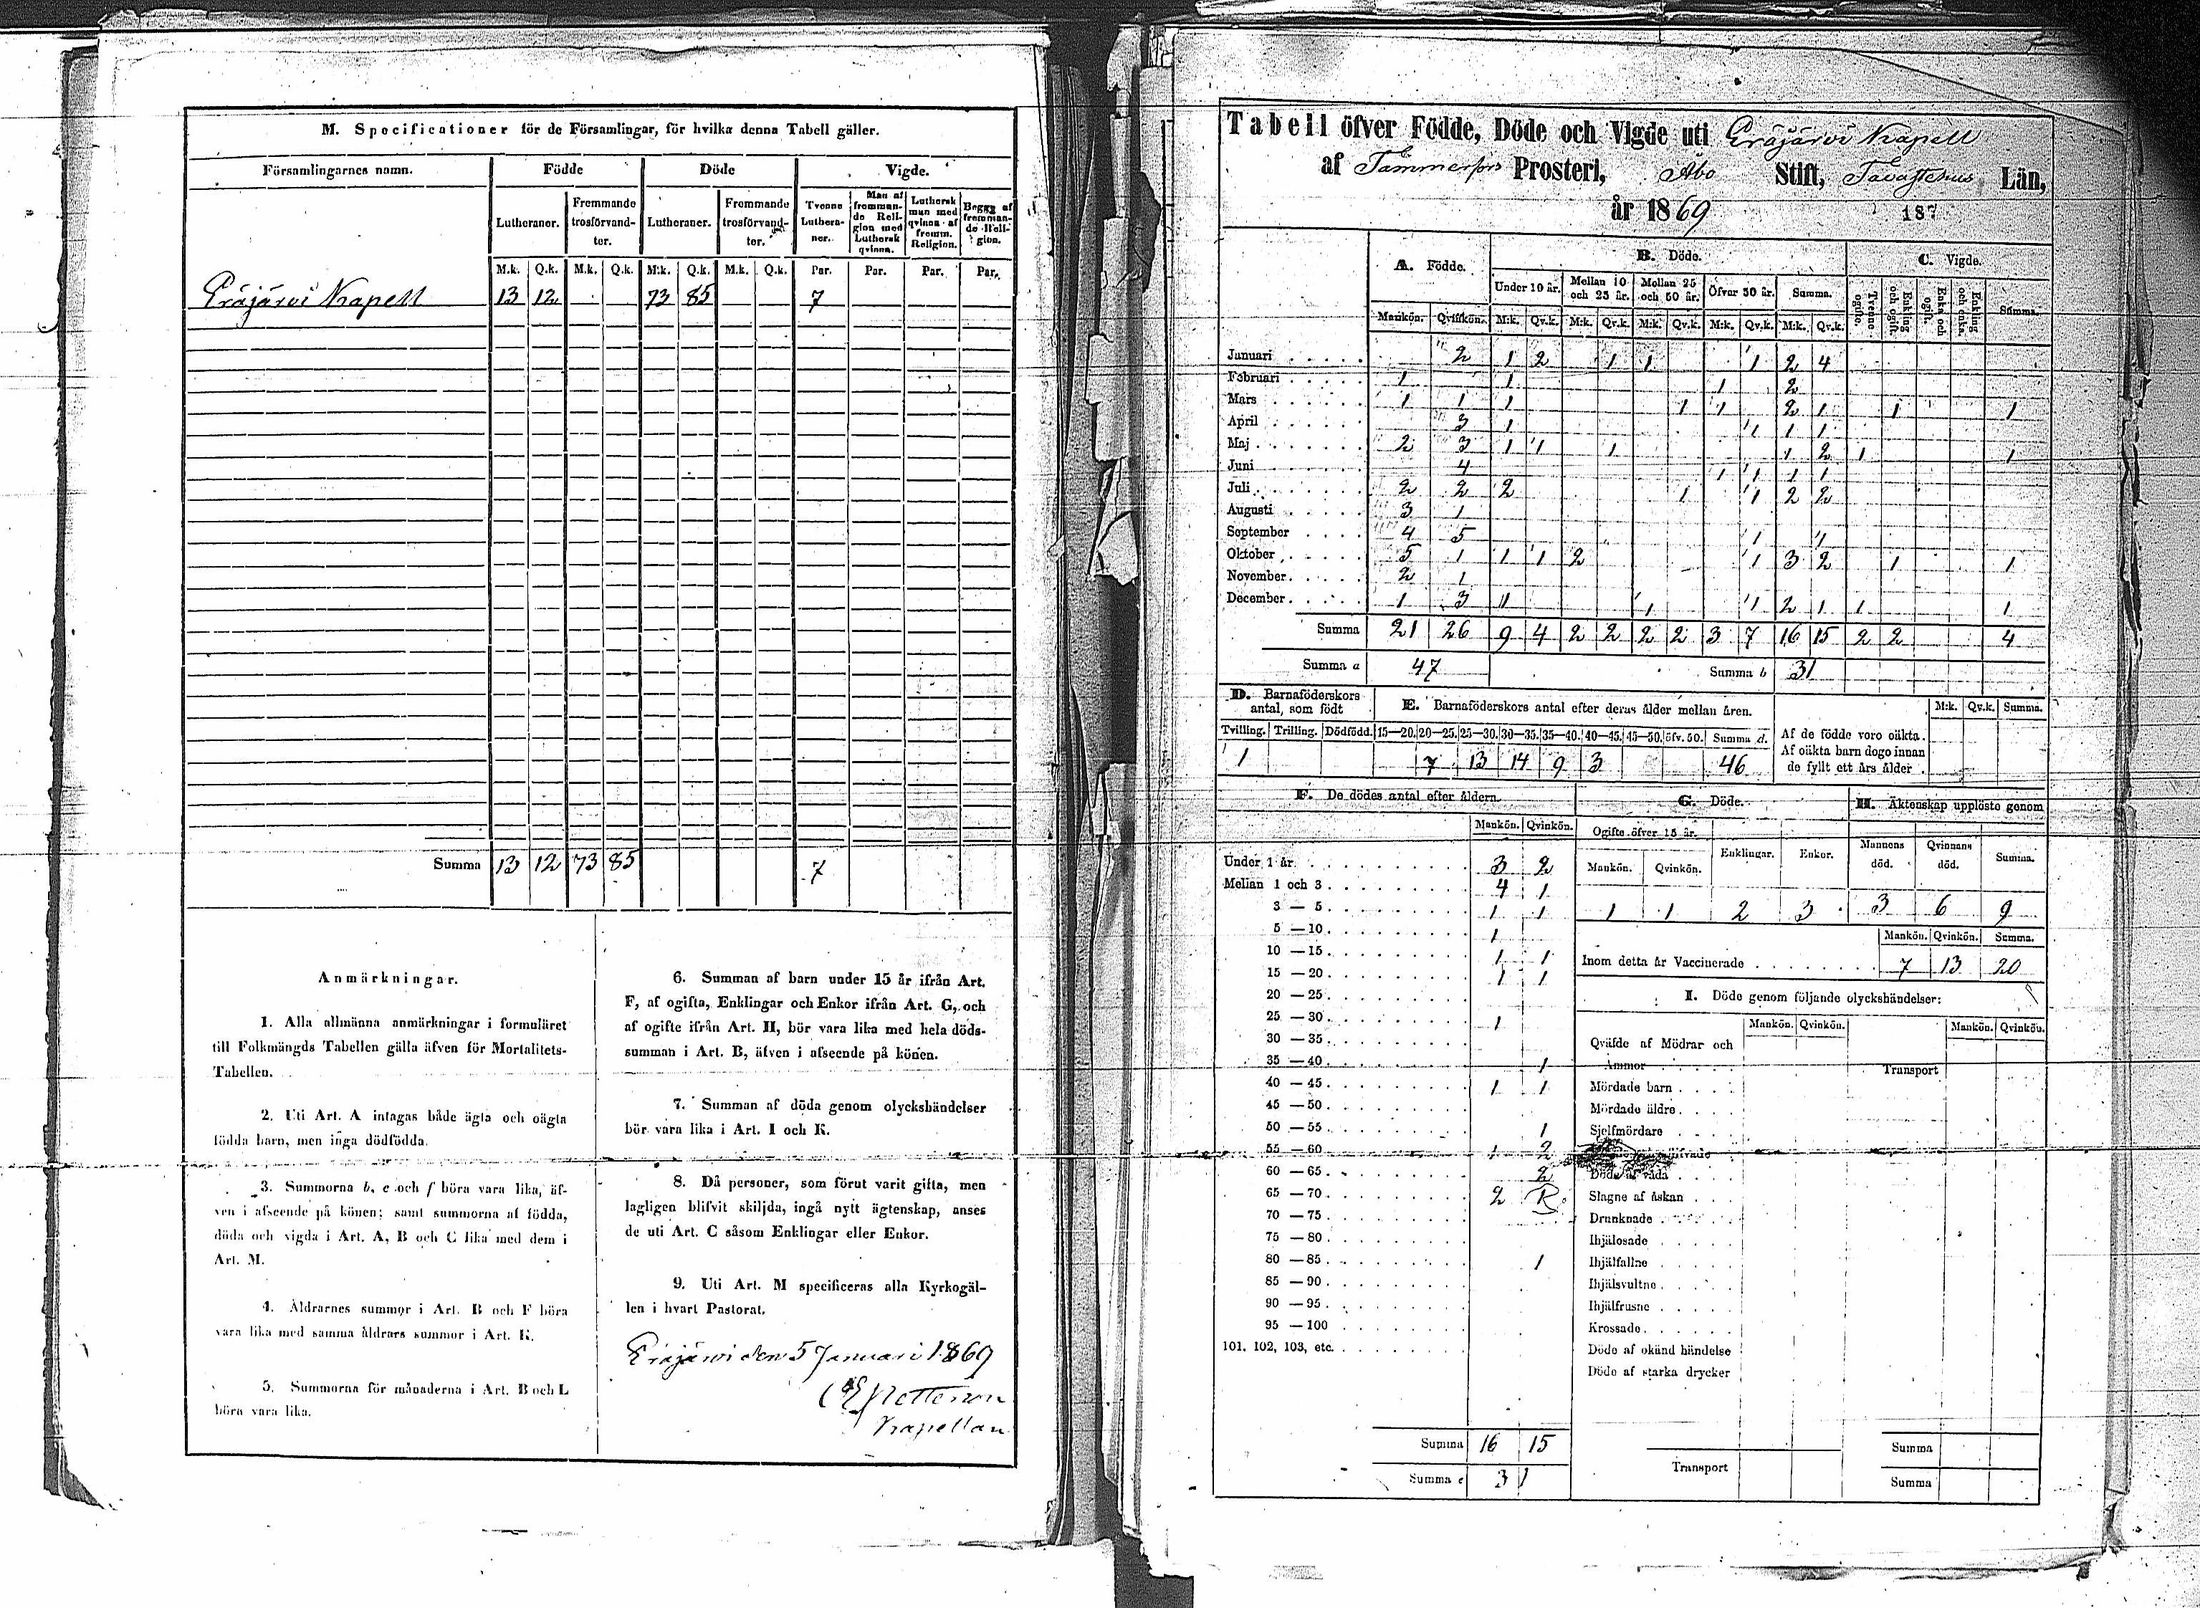 M. Specificationer för de Församlingar, för hvilka denna Tabell gäller.
Församlingarnes namn. Födde Döde Vigde.
Lutheraner. Fremmande trosförvandter. Lutheraner. Fremmande trosförvandter. Tvenne Lutheraner. Man af fremmande Religion med Luthersk qvinna. Luthersk man med qvinna af fremm. Religion. Begge af fremmande Religion.
M.k. Q.k. M.k. Q.k. M:k. Q.k. M.k. Q.k. Par. Par. Par. Par.
Eräjärvi Kapell 13 12 73 85 7
Summa 13 12 73 85 7
Anmärkningar.
1. Alla allmänna anmärkningar i formuläret
till Folkmängds Tabellen gälla äfven för Mortalitets-
Tabellen.
2. Uti Art. A intagas både ägta och oägta
födda barn, men inga dödfödda.
3. Summorna b, c och f böra vara lika, äf-
ven i afseende på könen; samt summorna af födda,
döda och vigda i Art. A, B och C lika med dem i
Art. M.
4. Åldrarnes summor i Art. B och F böra
vara lika med samma åldrars summor i Art. K.
5. Summorna för månaderna i Art. B och L
böra vara lika.
6. Summan af barn under 15 år ifrån Art.
F, af ogifta, Enklingar och Enkor ifrån Art. G, och
af ogifte ifrån Art. H, bör vara lika med hela döds-
summan i Art. B, äfven i afseende på könen.
7. Summan af döda genom olyckshändelser
bör vara lika i Art. I och K.
8. Då personer, som förut varit gifta, men
lagligen blifvit skiljda, ingå nytt ägtenskap, anses
de uti Art. C såsom Enklingar eller Enkor.
9. Uti Art. M specificeras alla Kyrkogäl-
len i hvart Pastorat.
Eräjärvi den 5 Januari 1869
Kapellan
Tabell öfver Födde, Döde och Vigde uti Eräjärvi Kapell
af Tammerfors Prosteri, Åbo Stift, Tavastehus Län,
år 1869 187
A. Födde. B. Döde. C. Vigde.
Under 10 år. Mellan 10 och 25 år. Mellan 25 och 50 år. Öfver 50 år. Summa. Tvenne ogifte. Enkling och ogift. Enka och ogift. Enkling och enka. Summa.
Mankön. Qvinkön. M:k. Qv.k. M:k. Qv.k. M:k. Qv.k. M:k. Qv.k. M:k. Qv.k.
Januari 2 1 2 1 1 1 2 4
Februari 1 1 1 2
Mars 1 1 1 1 1 2 1 1 1
April 3 1 1 1 1
Maj 2 3 1 1 1 1 2 1 1
Juni 4 1 1 1 1
Juli 2 2 2 1 1 2 2
Augusti 3 1
September 4 5 1 1
Oktober 5 1 1 1 2 1 3 2 1 1
November 2 1
December 1 3 1 1 1 2 1 1 1
Summa 21 26 9 4 2 2 2 2 3 7 16 15 2 2 4
Summa a 47 Summa b 31
D. Barnaföderskors antal, som födt
Tvilling. Trilling. Dödfödd.
1
E. Barnaföderskors antal efter deras ålder mellan åren.
15—20. 20—25. 25—30. 30—35. 35—40. 40—45. 45—50. öfv. 50. Summa d.
7 13 14 9 3 46
M:k. Qv.k. Summa.
Af de födde voro oäkta.
Af oäkta barn dogo innan
de fyllt ett års ålder
F. De dödes antal efter åldern.
Mankön. Qvinkön.
Under 1 år 3 2
Mellan 1 och 3 4 1
3 — 5 1 1
5 — 10 1
10 — 15 1 1
15 — 20 1 1
20 — 25
25 — 30 1
30 — 35
35 — 40 1
40 — 45 1 1
45 — 50
50 — 55 1
55 — 60 1 2
60 — 65 2
65 — 70 2
70 — 75
75 — 80
80 — 85 1
85 — 90
90 — 95
95 — 100
101, 102, 103, etc.
Summa 16 15
Summa c 31
G. Döde.
Ogifte öfver 15 år. Enklingar. Enkor.
Mankön. Qvinkön.
1 1 2 3
H. Äktenskap upplöste genom
Mannens död. Qvinnans död. Summa.
3 6 9
Mankön. Qvinkön. Summa.
Inom detta år Vaccinerade 7 13 20
I. Döde genom följande olyckshändelser:
Mankön. Qvinkön. Mankön. Qvinkön.
Qväfde af Mödrar och
Ammor Transport
Mördade barn
Mördade äldre
Sjelfmördare
Döde af våda
Slagne af åskan
Drunknade
Ihjälosade
Ihjälfallne
Ihjälsvultne
Ihjälfrusne
Krossade
Döde af okänd händelse
Döde af starka drycker
Summa
Transport
Summa